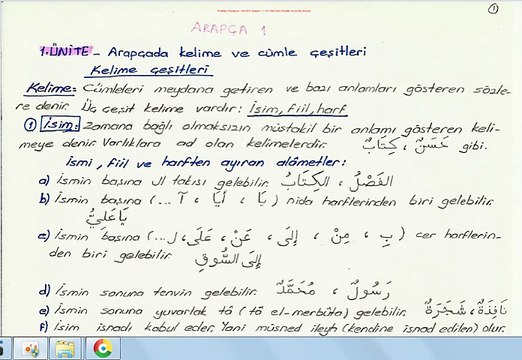 ①
ARAPÇA 1
1.ÜNİTE - Arapçada kelime ve cümle çeşitleri
Kelime çeşitleri
Kelime: Cümleleri meydana getiren ve bazı anlamları gösteren sözle-
re denir. Üç çeşit kelime vardır: İsim, fiil, harf
① İsim: Zamana bağlı olmaksızın müstakil bir anlamı gösteren keli-
meye denir. Varlıklara ad olan kelimelerdir. حَسَنٌ ، كِتَابٌ gibi.
İsmi, fiil ve harften ayıran alâmetler:
a) İsmin başına ال takısı gelebilir. الفَصْلُ ، الكِتَابُ
b) İsmin başına (يَا ، أَيَا ، آ ...) nida harflerinden biri gelebilir.
يَا عَلِيُّ
c) İsmin başına (بِ ، مِنْ ، إِلَى ، عَنْ ، عَلَى ، لِ ...) cer harflerin-
den biri gelebilir. إِلَى السُّوقِ
d) İsmin sonuna tenvin gelebilir. رَسُولٌ ، مُحَمَّدٌ
e) İsmin sonuna yuvarlak tâ (tâ el-merbûta) gelebilir. نَافِذَةٌ ، شَجَرَةٌ
f) İsim isnadı kabul eder. Yani müsned ileyh (kendine isnad edilen) olur.